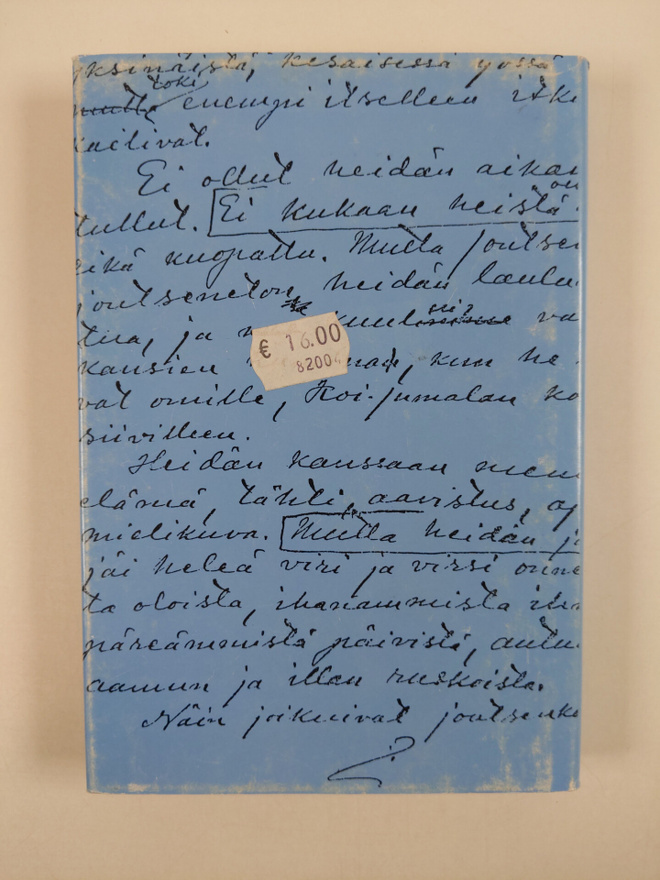 yksinäistä, kesäisessä yössä
toki
mutta enempi itselleen itke
kailivat.
Ei ollut heidän aikan
tullut. Ei kukaan heistä
eikä kuopattu. Mutta joutsen
joutseneton, heidän laulu
tua, ja va
€ 16.00
kansien kun he
8200
vat omille, Koi-jumalan ko
siivilleen.
Heidän kanssaan men
elämä, tähti, aavistus,
mielikuva. Mutta heidän j
jäi heleä viri ja virsi onne
ta oloista, ihanammista
päreämmistä päivistä, autu
aamun ja illan ruskoista.
Näin joikuivat joutsenke